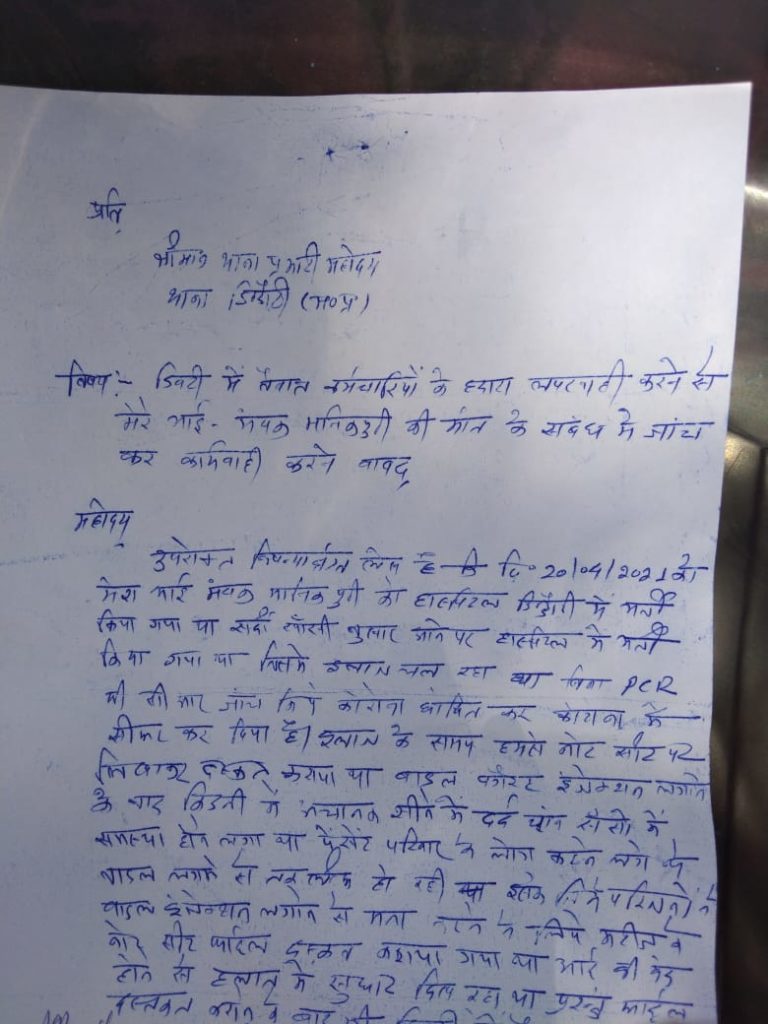 प्रति,
श्रीमान थाना प्रभारी महोदय
थाना डिंडौरी (म०प्र)
विषय:- डिवटी में तैनात कर्मचारियों के द्वारा लापरवाही करने से
मेरे भाई - मंयक मानिकपुरी की मौत के संबंध मे जांच
कर कार्यवाही करने वावद्
महोदय,
उपरोक्त विषयांर्गत लेख है कि दि० 20/04/2021 को
मेरा भाई मंयक मानिकपुरी को हास्पिटल डिंडौरी में भर्ती
किया गया था सर्दी खाँसी बुखार आने पर हास्पिटल मे भर्ती
किया गया था जिसमे इलाज चल रहा था बिना PCR
जाँच किये कोरोना घोषित कर कोरोना के
कर दिया है। इलाज के समय हमसे नोट सीट पर
कराया था वाइल इंजेक्शन लगाने
के बाद किडनी में अचानक सीने मे दर्द सांसो में
समस्या होने लगा था पेसेंट परिवार के लोग कहने लगे
वाइल लगाने से तकलीफ हो रही था इसके लिये परिजनो ने
वाइल इंजेक्शन लगाने से मना करने के लिये मरीज के
नोट सीट कराया गया था भाई की
होने से हालात मे सुधार दिख रहा था परन्तु फाईल
के बाद